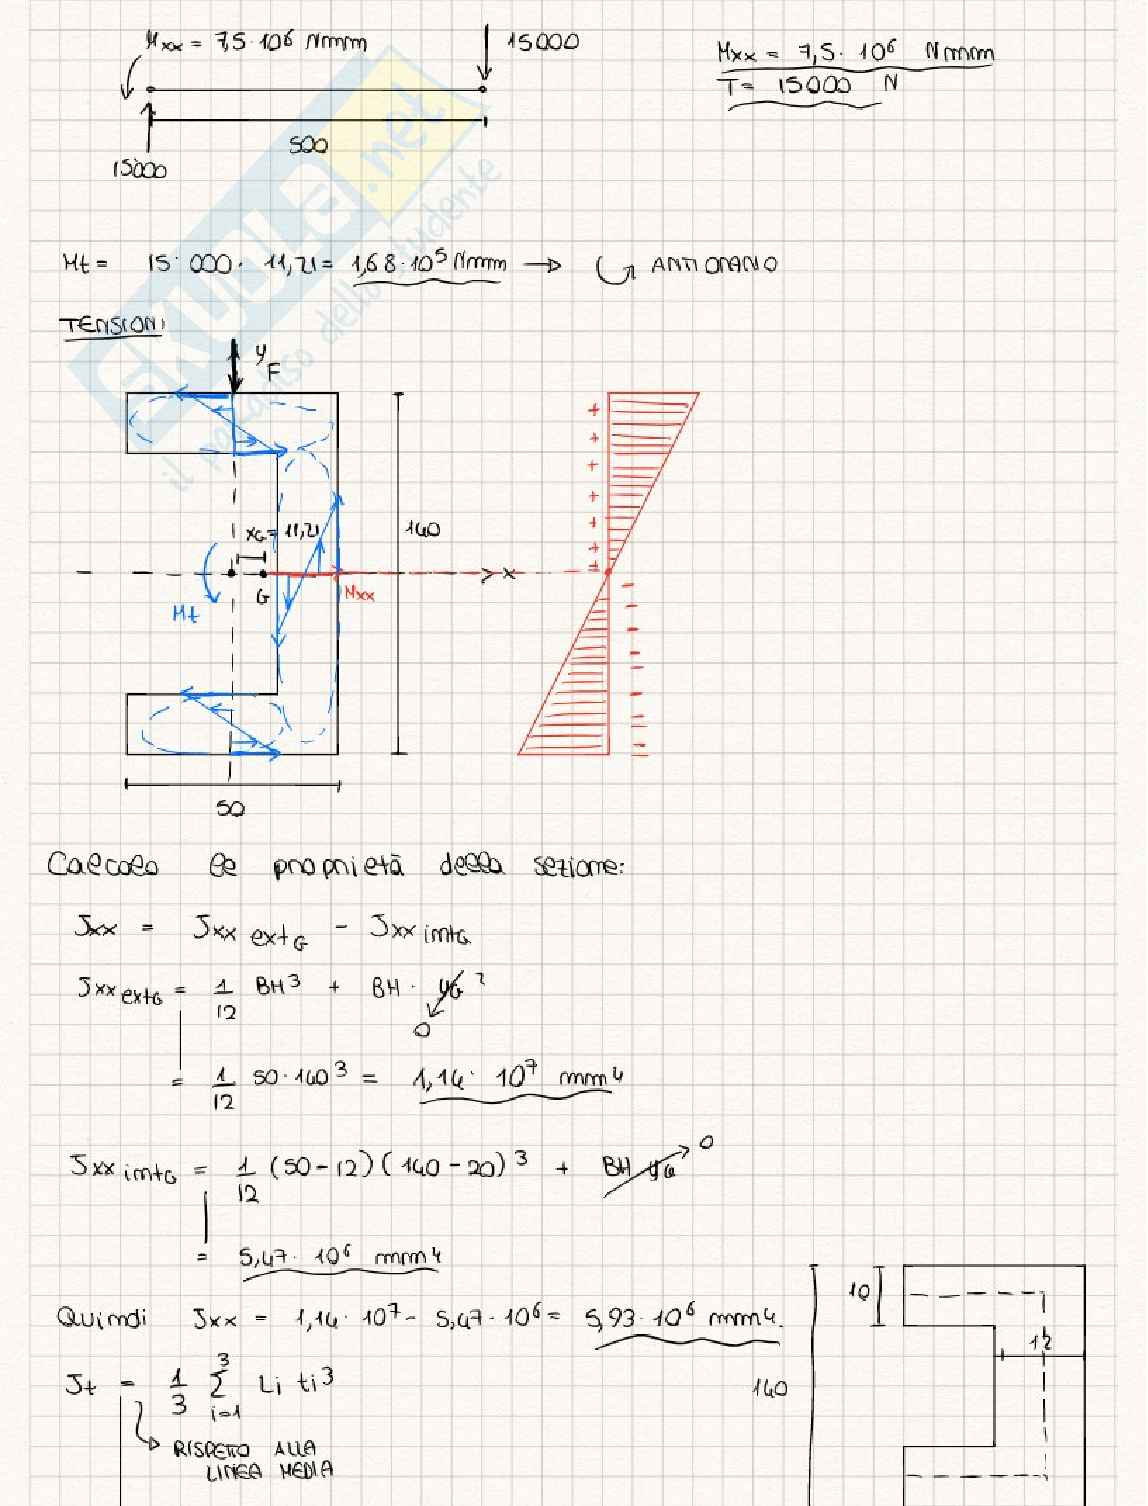 Mxx = 7,5·10⁶ Nmm
15000
Mxx = 7,5·10⁶ Nmm
T = 15000 N
500
15000
SKUOLA.net
il paradiso dello studente
Mt = 15·000· 11,21 = 1,68·10⁵ Nmm → ANTIORARIO
TENSIONI
y
F
+
+
+
+
+
+
140
xG = 11,21
x
G
Mxx
Mt
-
-
-
-
-
-
-
50
Calcolo le proprietà della sezione:
Jxx = Jxx extG - Jxx intG
Jxx extG = 1/12 BH³ + BH · yG²
0
= 1/12 50·140³ = 1,14· 10⁷ mm⁴
Jxx intG = 1/12 (50-12)(140-20)³ + BH yG 0
= 5,47· 10⁶ mm⁴
Quindi Jxx = 1,14·10⁷ - 5,47·10⁶ = 5,93·10⁶ mm⁴
10
12
140
Jt = 1/3 Σ³ᵢ₌₁ Li ti³
RISPETTO ALLA
LINEA MEDIA